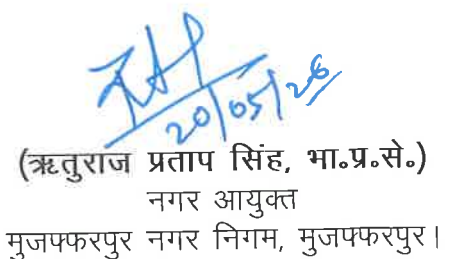 20/05/26
(ऋतुराज प्रताप सिंह, भा॰प्र॰से॰)
नगर आयुक्त
मुजफ्फरपुर नगर निगम, मुजफ्फरपुर।